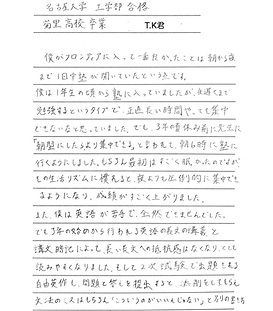 名古屋大学 工学部 合格
菊里高校卒業 T.K君
僕がフロンティアに入って一番良かったことは朝から夜
まで1日中塾が開いていたという点です。
僕は1年生の頃から塾に入っていましたが、夜遅くまで
勉強するというタイプで、正直長い時間やっても集中
できないなと思っていました。でも、3年の夏休み前に先生に
「朝型にしたらより集中できる」と言われて、朝6時に塾に
行くようにしました。もちろん最初はすごく眠かったのですが
もの生活リズムに慣えると、夜よりも圧倒的に集中でき
るようになり、成績がすごく上がりました。
また、僕は英語が苦手で、全然できませんでした。
でも3年の始めから行われる英語の長文の講義と
講文暗記によって、長い長文への抵抗感はなくなり、とても
読みやすくなりました。そして2次試験で出題される
自由英作も、問題と答えを提出すると、添削をしてもらえ
文法のミスはもちろん「こういうのがいいんじゃない」と別の書き方